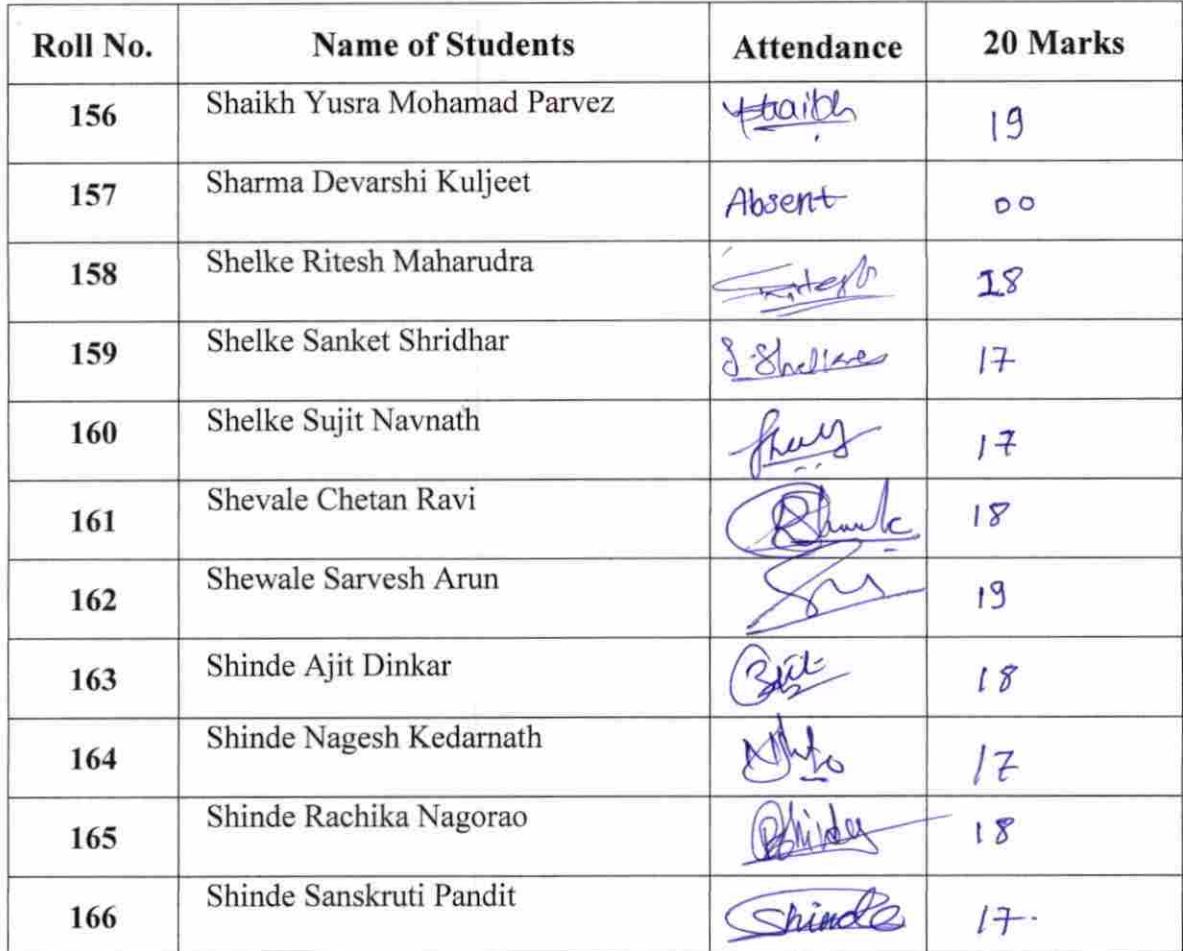 Roll No. Name of Students Attendance 20 Marks
156 Shaikh Yusra Mohamad Parvez 19
157 Sharma Devarshi Kuljeet Absent 00
158 Shelke Ritesh Maharudra 18
159 Shelke Sanket Shridhar 17
160 Shelke Sujit Navnath 17
161 Shevale Chetan Ravi 18
162 Shewale Sarvesh Arun 19
163 Shinde Ajit Dinkar 18
164 Shinde Nagesh Kedarnath 17
165 Shinde Rachika Nagorao 18
166 Shinde Sanskruti Pandit Shinde 17.